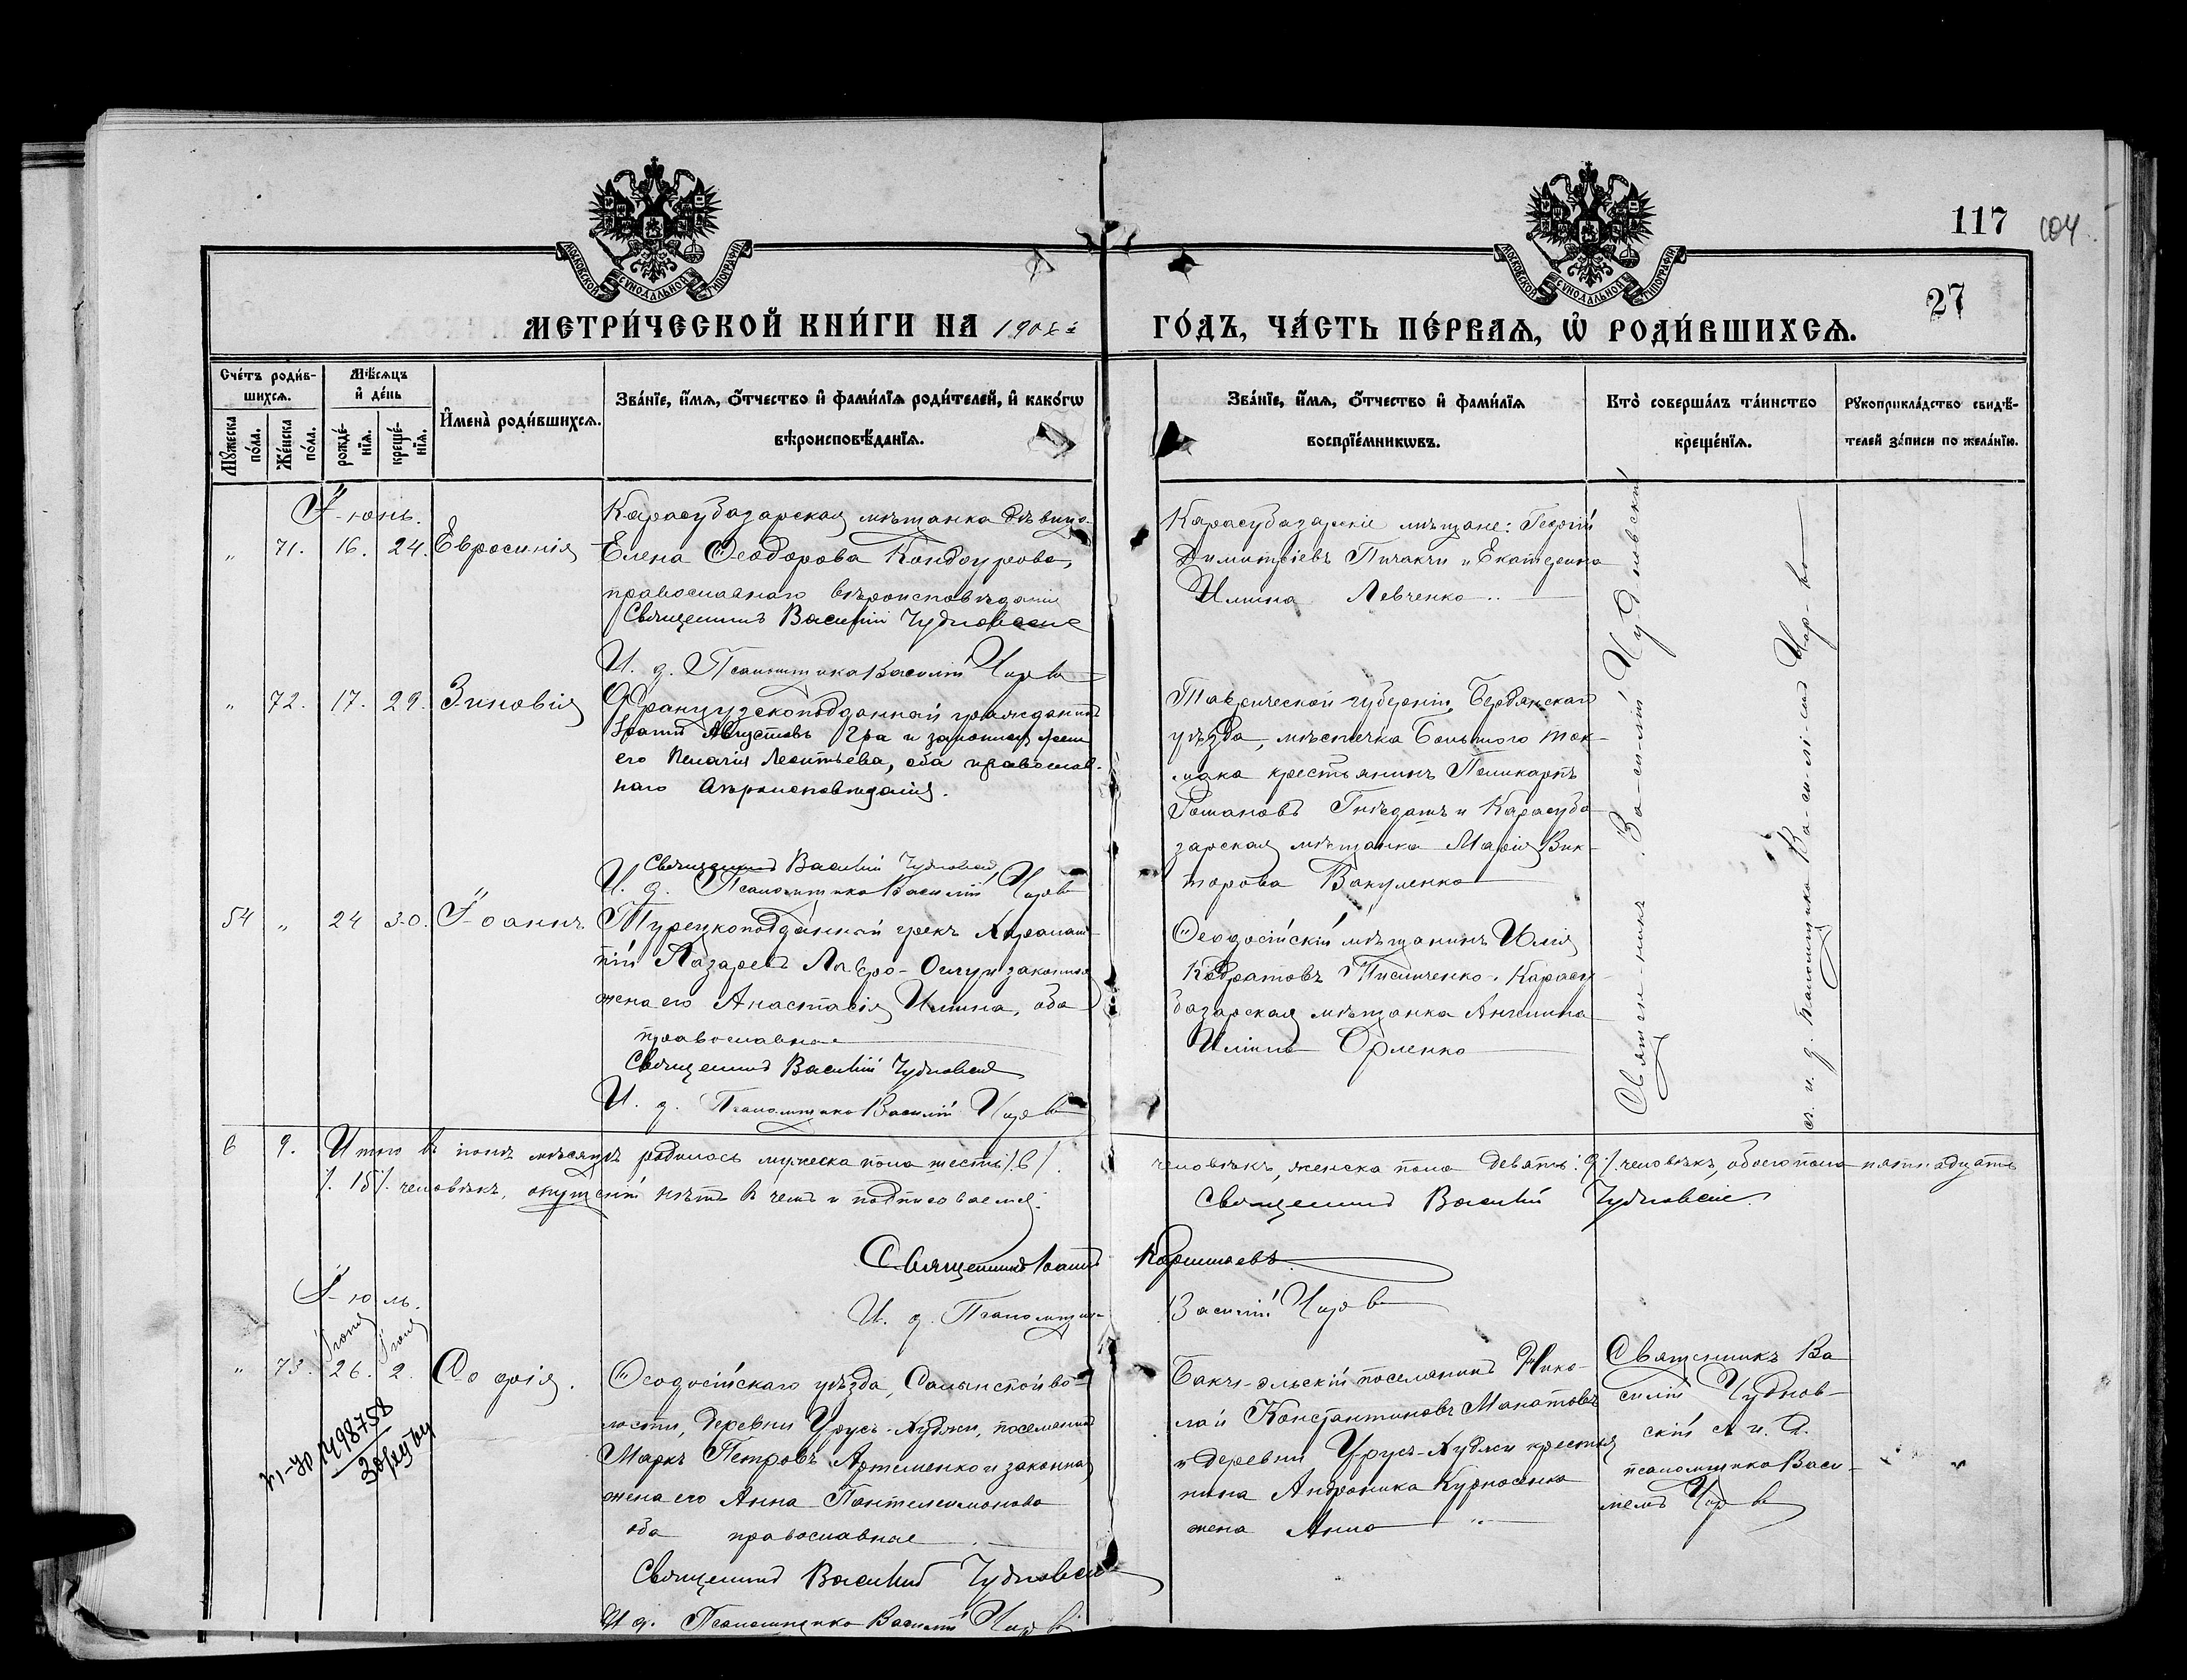 117
104
27
МОСКОВСКОЙ СУНОДАЛЬНОЙ ТИПОГРАФІИ
МОСКОВСКОЙ СУНОДАЛЬНОЙ ТИПОГРАФІИ
МЕТРИ́ЧЕСКОЙ КНИ́ГИ НА 1908й
ГО́ДЪ, ЧА́СТЬ ПЕ́РВАѦ, Ѿ РОДИ́ВШИХСѦ.
Сче́тъ роди́в-
шихсѧ.
Мѣ́сѧцъ
и҆ де́нь
И҆мена̀ роди́вшихсѧ.
Зва́нїе, и҆́мѧ, ѻ҆́тчество и҆ фами́лїѧ роди́телей, и҆ како́гѡ
вѣроисповѣ́данїѧ.
Мꙋжеска
по́ла.
Же́нска
по́ла.
рожде́-
нїѧ.
креще́-
нїѧ.
Зва́нїе, и҆́мѧ, ѻ҆́тчество и҆ фами́лїѧ
воспрїе́мникѡвъ.
Кто̀ соверша́лъ та́инство
креще́нїѧ.
Рꙋкоприкла́дство свидѣ́-
телей за́писи по жела́нїю.
Іюнь.
„ 71. 16. 24. Евросинія
Карасубазарская мѣщанка дѣвица
Елена Ѳеодорова Кондоурова,
православнаго вѣроисповѣданія
Священникъ Василій Чудновскій
И. д. Псаломщика Василій
Карасубазарскіе мѣщане: Георгій
Димитріевъ Пичакчи и Екатерина
Ильина Левченко
„ 72. 17. 29. Зиновія
Французскоподданный гражданинъ
Августовъ Гра и законная жена
его Пелагія Леонтьева, оба православ-
наго вѣроисповѣданія.
Священникъ Василій Чудновскій
И. д. Псаломщика Василій
Таврической губерніи, Бердянскаго
уѣзда, мѣстечка Большого Ток-
мака крестьянинъ Поликарпъ
Романовъ и Карасуба-
зарская мѣщанка Марія Вик-
торова Вакуленко
54 „ 24 30. Іоаннъ
Турецкоподданный грекъ Харалам-
пій Лазаревъ Лавро-Оглу и законная
жена его Анастасія Ильина, оба
православные
Священникъ Василій Чудновскій
И. д. Псаломщика Василій
Ѳеодосійскій мѣщанинъ Илія
Кодратовъ и Карасу-
базарская мѣщанка Ангелина
Ильина Орленко
Священникъ Василій Чудновскій
съ и. д. псаломщика Василіемъ
6 9. Итого въ іюнѣ мѣсяцѣ родилось мужеска пола шесть /.6/.
человѣкъ, женска пола девять /.9/. человѣкъ, обоего пола пятнадцать
/.15/. человѣкъ, опущеній нѣтъ въ чемъ и подписываемся:
Священникъ Василій Чудновскій
Священникъ Іоаннъ
И. д. Псаломщика
Василій
Іюль.
Іюня Іюля
„ 73. 26. 2. Софія.
Ѳеодосійскаго уѣзда, Салынской во-
лости, деревни Урусъ-Ходжи, поселянинъ
Маркъ Петровъ Артеменко и законная
жена его Анна Пантелеимонова
оба православные
Священникъ Василій Чудновскій
И. д. Псаломщика Василій
Бакчи-Эльскій поселянинъ Нико-
лай Константиновъ
и деревни Урусъ-Ходжи крестья-
нина Андроника Курносенко
жена Анна
Священникъ Ва-
силій Чуднов-
скій съ и. д.
псаломщика Васи-
ліемъ